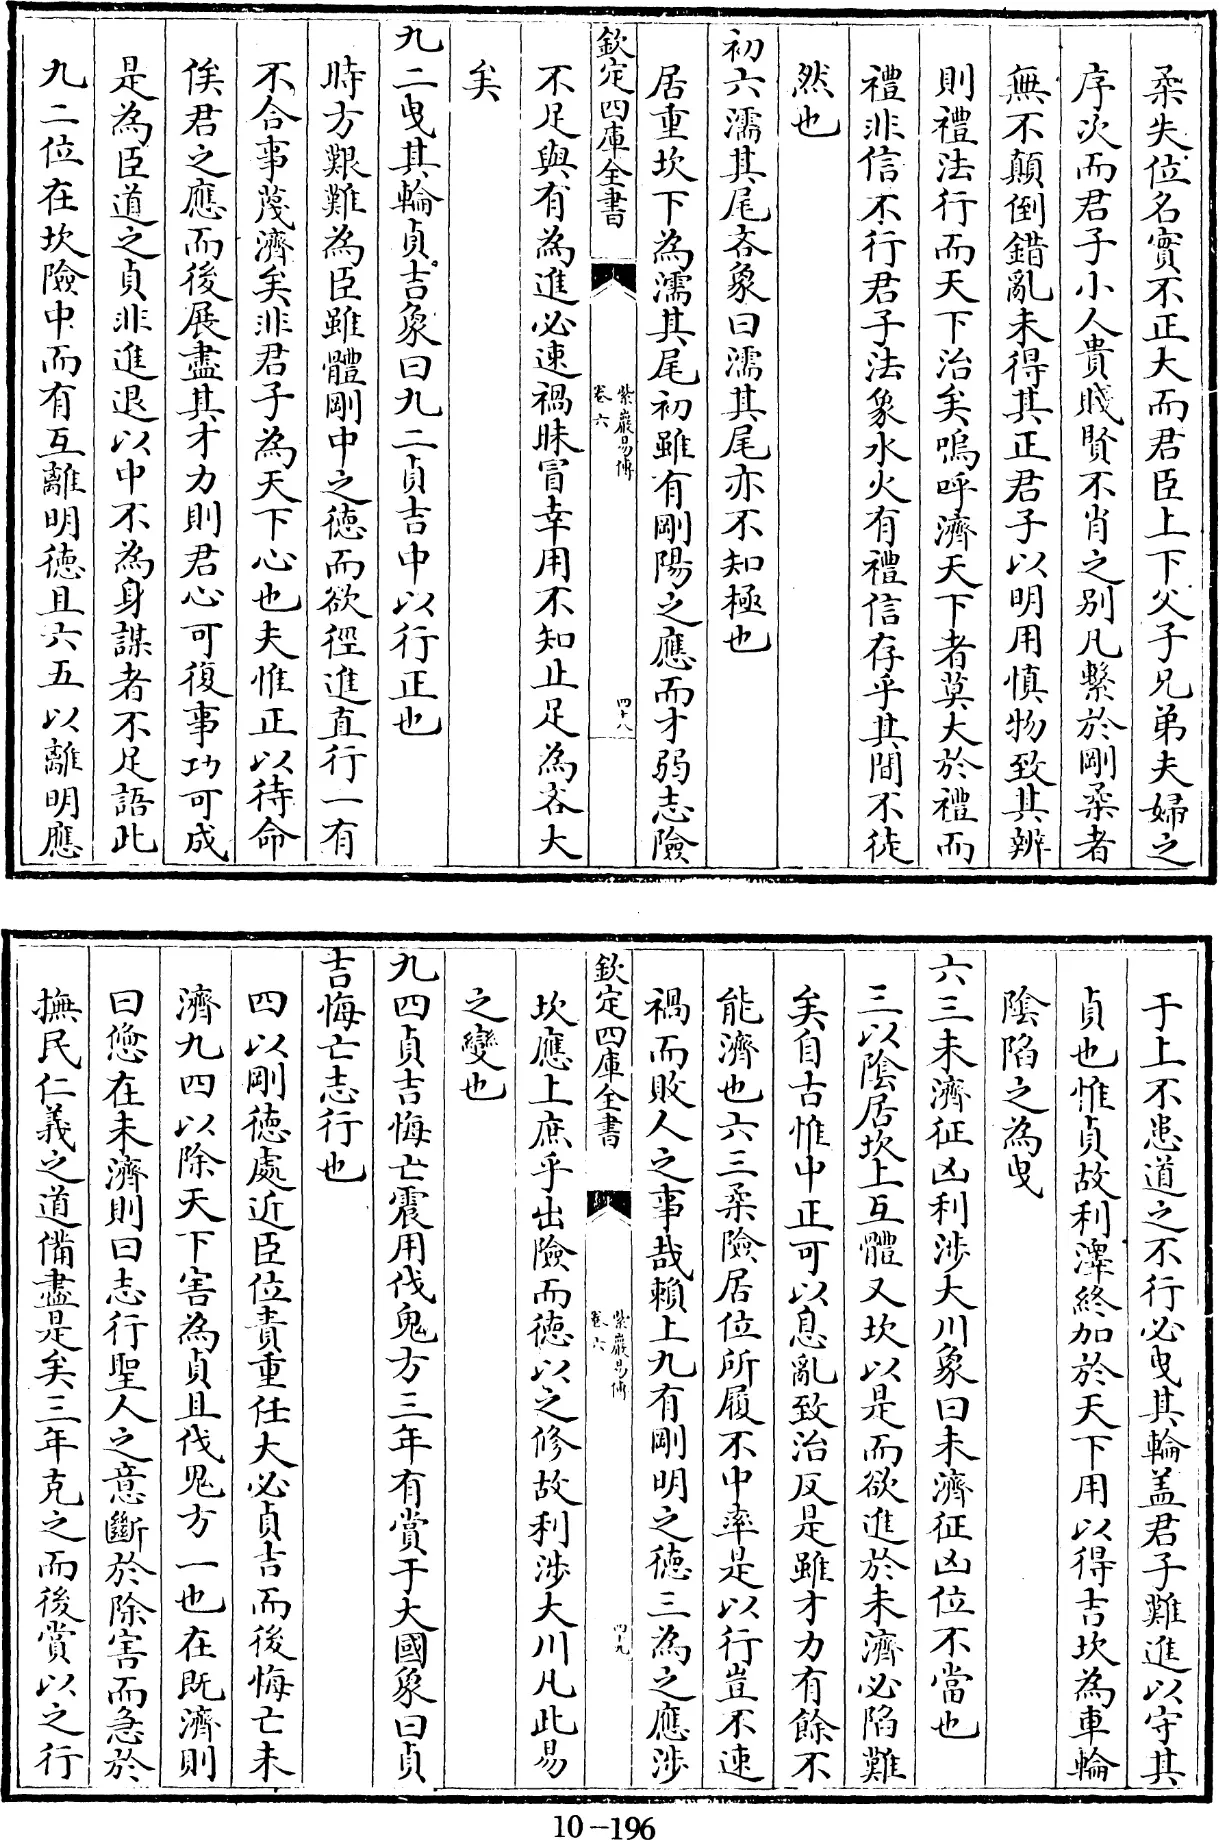 柔失位名實不正大而君臣上下父子兄弟夫婦之
序次而君子小人貴賤賢不肖之別凡繫於剛柔者
無不顛倒錯亂未得其正君子以明用慎物致其辨
則禮法行而天下治矣嗚呼濟天下者莫大於禮而
禮非信不行君子法象水火有禮信存乎其間不徒
然也
初六濡其尾吝象曰濡其尾亦不知極也
居重坎下為濡其尾初雖有剛陽之應而才弱志險
欽定四庫全書
紫巖易傳
卷六
四十八
不足與有為進必速禍昧冒幸用不知止足為吝大
矣
九二曳其輪貞吉象曰九二貞吉中以行正也
時方艱難為臣雖體剛中之德而欲徑進直行一有
不合事蔑濟矣非君子為天下心也夫惟正以待命
俟君之應而後展盡其才力則君心可復事功可成
是為臣道之貞非進退以中不為身謀者不足語此
九二位在坎險中而有互離明德且六五以離明應
于上不患道之不行必曳其輪盖君子難進以守其
貞也惟貞故利澤終加於天下用以得吉坎為車輪
陰陷之為曳
六三未濟征凶利涉大川象曰未濟征凶位不當也
三以陰居坎上互體又坎以是而欲進於未濟必陷難
矣自古惟中正可以息亂致治反是雖才力有餘不
能濟也六三柔險居位所履不中率是以行豈不速
禍而敗人之事哉賴上九有剛明之德三為之應涉
欽定四庫全書
紫巖易傳
卷六
四十九
坎應上庶乎出險而德以之修故利涉大川凡此易
之變也
九四貞吉悔亡震用伐鬼方三年有賞于大國象曰貞
吉悔亡志行也
四以剛德處近臣位責重任大必貞吉而後悔亡未
濟九四以除天下害為貞且伐鬼方一也在既濟則
曰憊在未濟則曰志行聖人之意斷於除害而急於
撫民仁義之道備盡是矣三年克之而後賞以之行
10-196